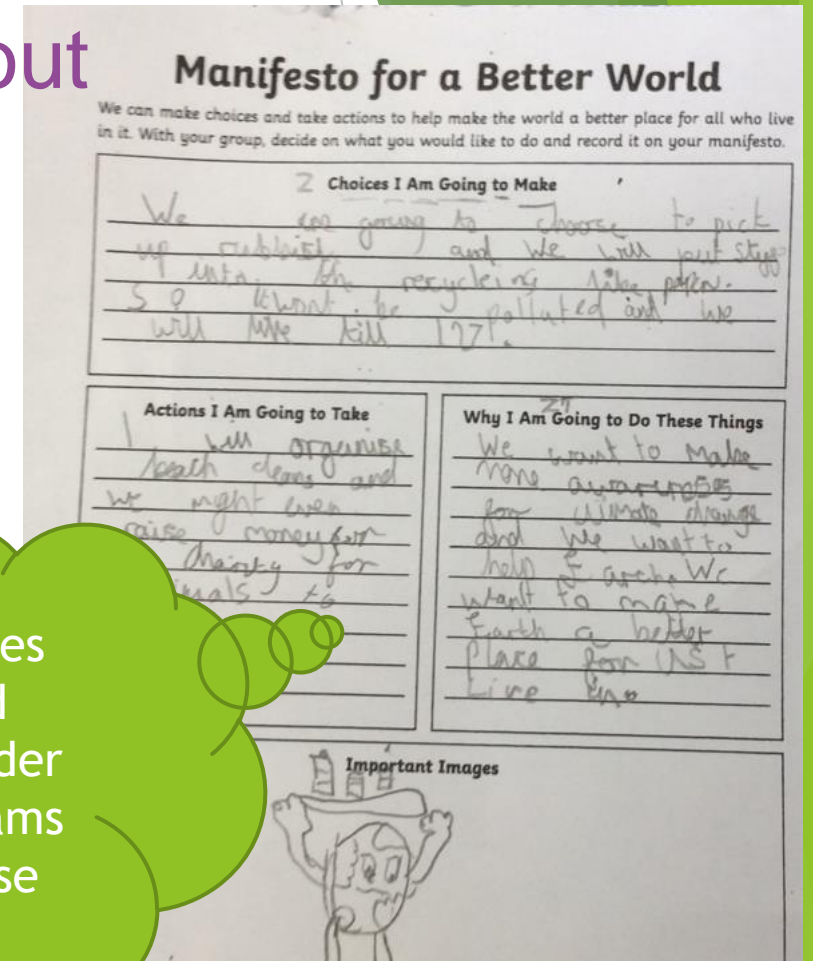 out
Manifesto for a Better World
We can make choices and take actions to help make the world a better place for all who live
in it. With your group, decide on what you would like to do and record it on your manifesto.
Choices I Am Going to Make
We are going to choose to pick
up rubbish and we will put
into the recycleing like
So it wont be polluted and we
will live till 127.
Actions I Am Going to Take
I will organise
beach cleans and
we might even
raise money for
charity for
imals to
Why I Am Going to Do These Things
We want to make
more
for climate change
and we want to
help Earth. We
want to make
Earth a better
place for us t
live
Important Images
es
der
ams
se